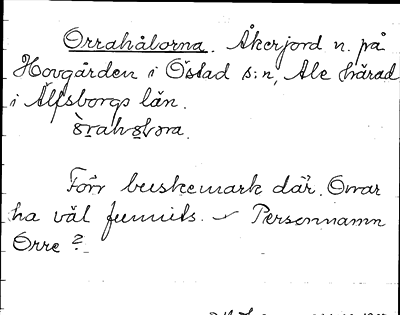 Orrahålorna. Åkerjord n. på
Hovgården i Östad s:n, Ale härad
i Älfsborgs län.
Förr buskemark där. Orrar
ha väl funnits. – Personnamn
Orre?